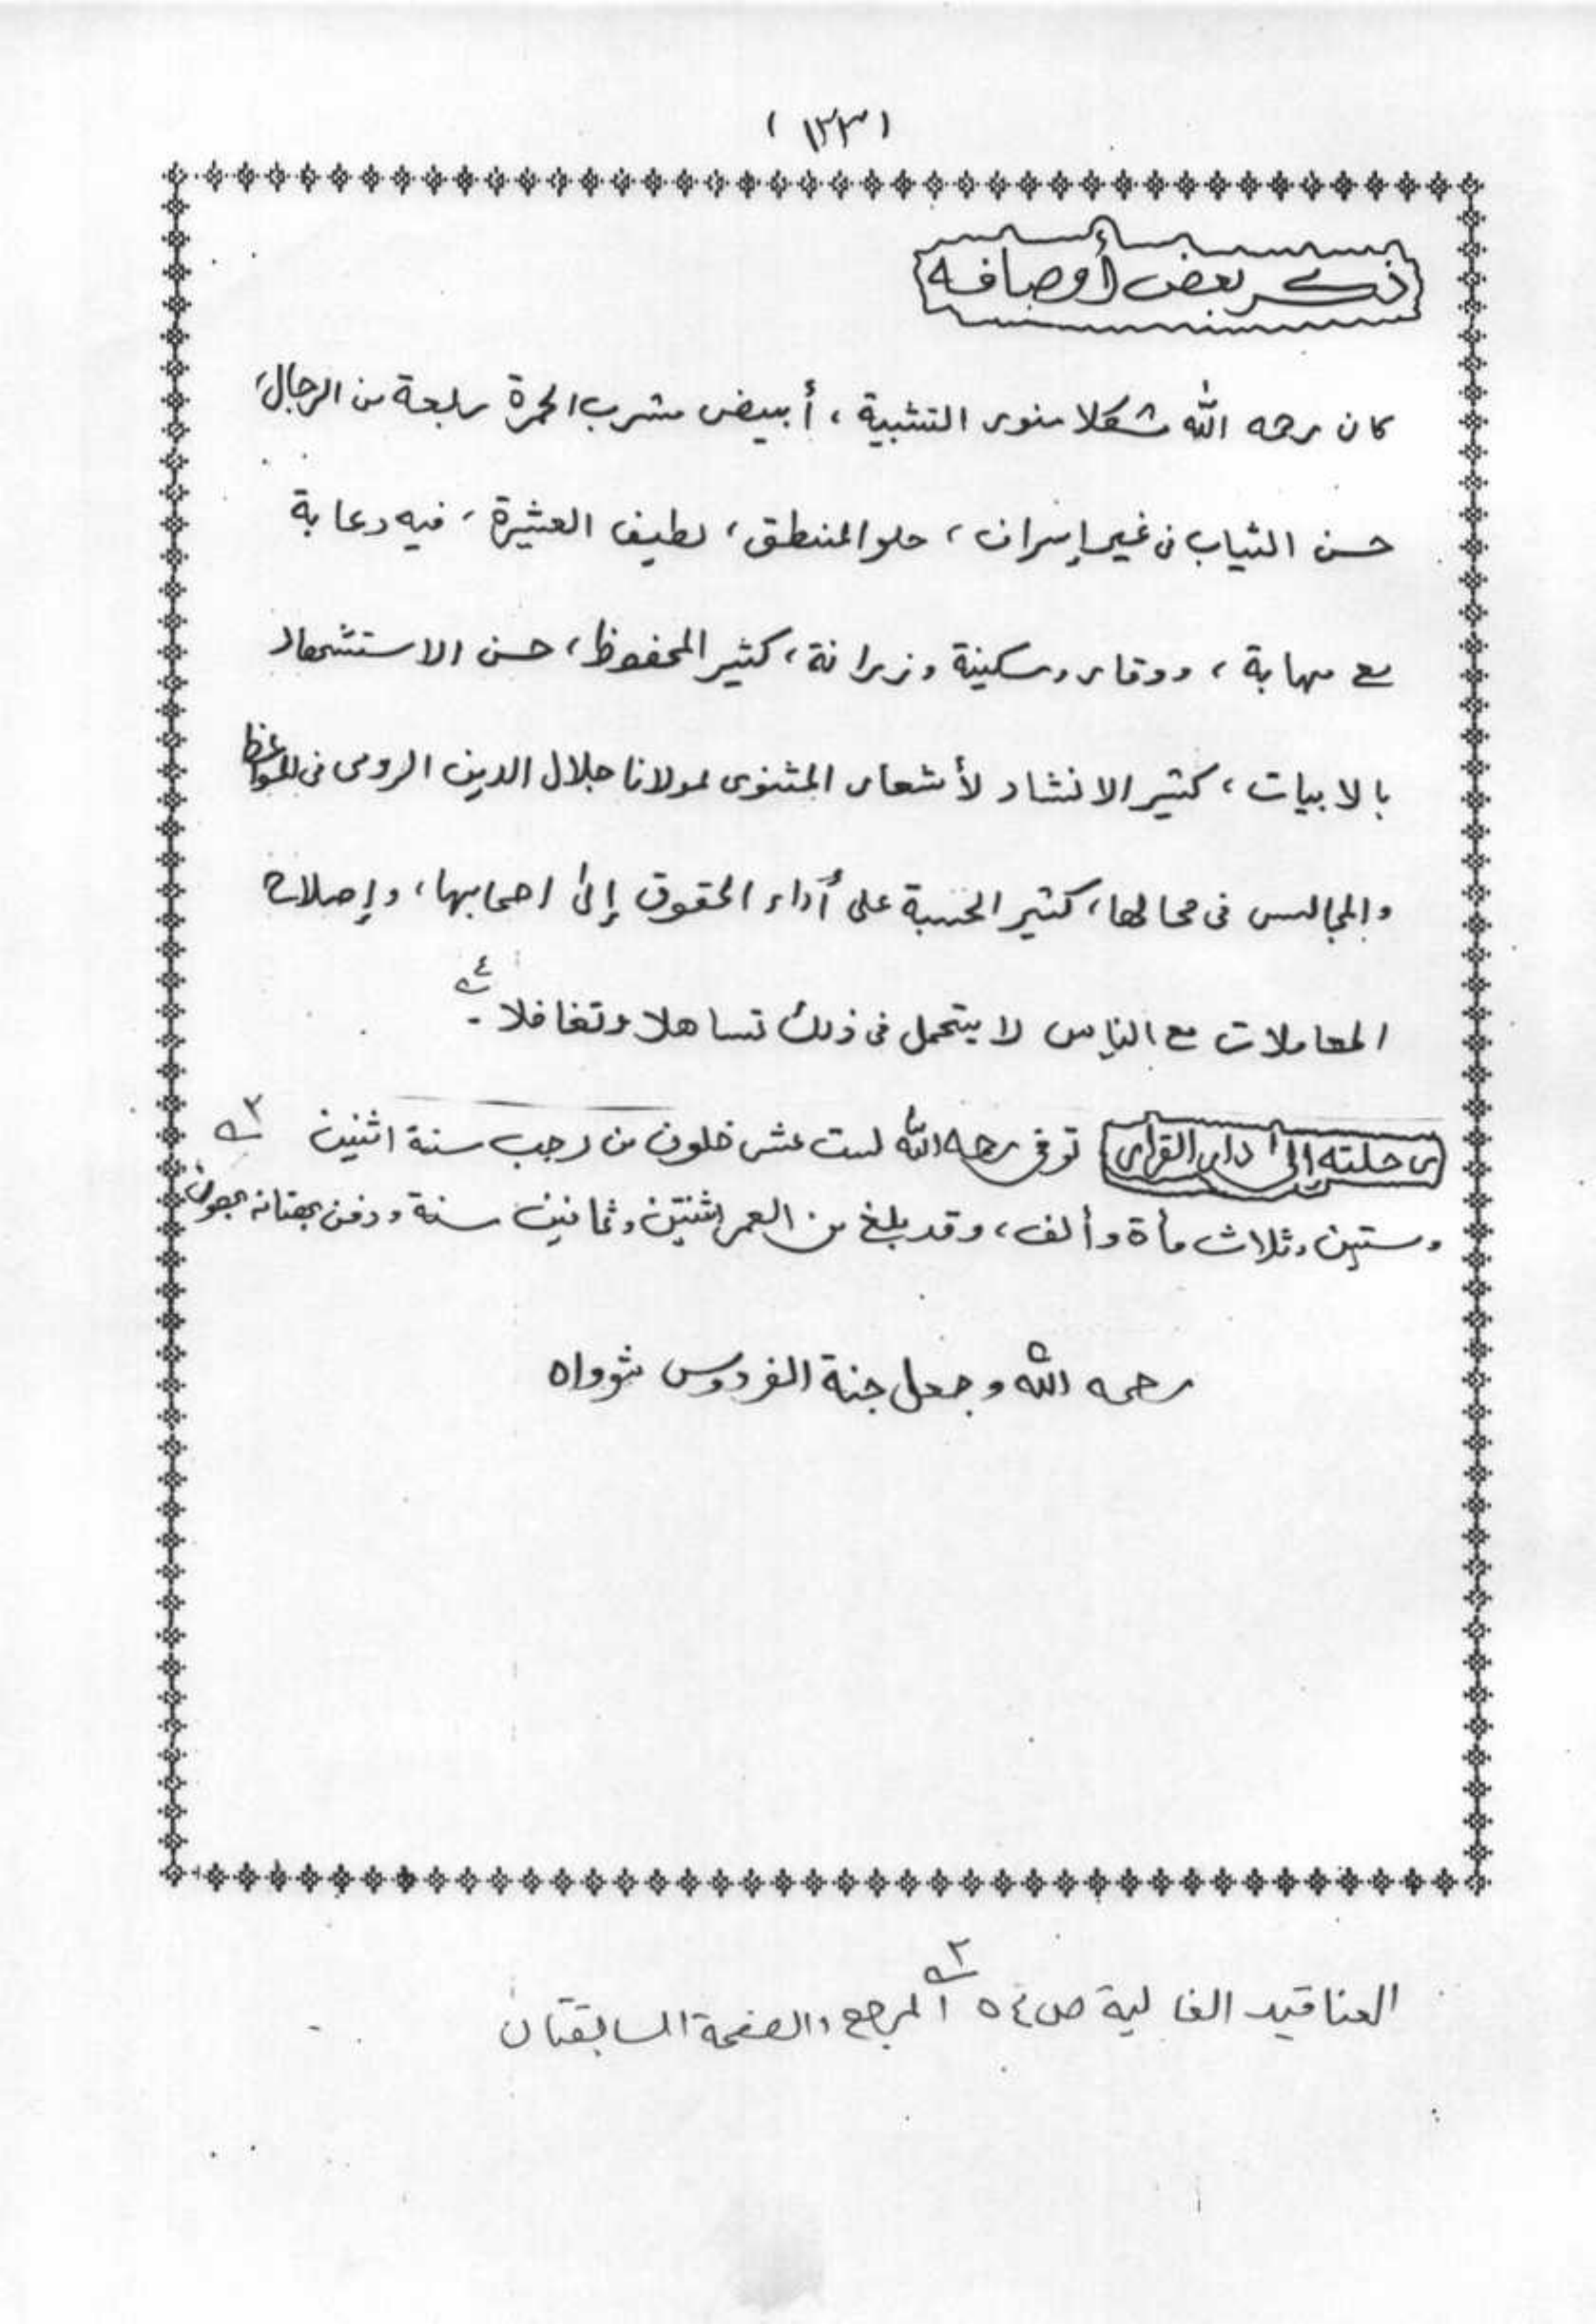 (١٣٣)
ذكر بعض أوصافه
كان رحمه الله شكلا منور التشبية، أبيض مشرب الحمرة ربعة من الرجال،
حسن الثياب فى غير إسراف، حلو المنطق، لطيف العشيرة، فيه دعابة
مع مهابة، ووقار وسكينة ورزانة، كثير المحفوظ، حسن الاستشهاد
بالابيات، كثير الانشاد لأشعار المثنوى لمولانا جلال الدين الرومى فى المواعظ
والمجالس فى محالها، كثير الحسبة على أداء الحقوق إلى اصحابها، وإصلاح
المعاملات مع الناس لا يتحمل فى ذلك تساهلا وتغافلا ـ
رحلته إلى دار القرار توفى رحمه الله لست عشر خلون من رجب سنة اثنين ٢
وستين وثلاث مأة وألف، وقد بلغ من العمر اثنتين وثمانين سنة ودفن بمقتانه بهون
رحمه الله وجعل جنة الفردوس مثوواه
العناقيد الغالية ص ٥٤ ٢ المرجع والصفحة السابقتان